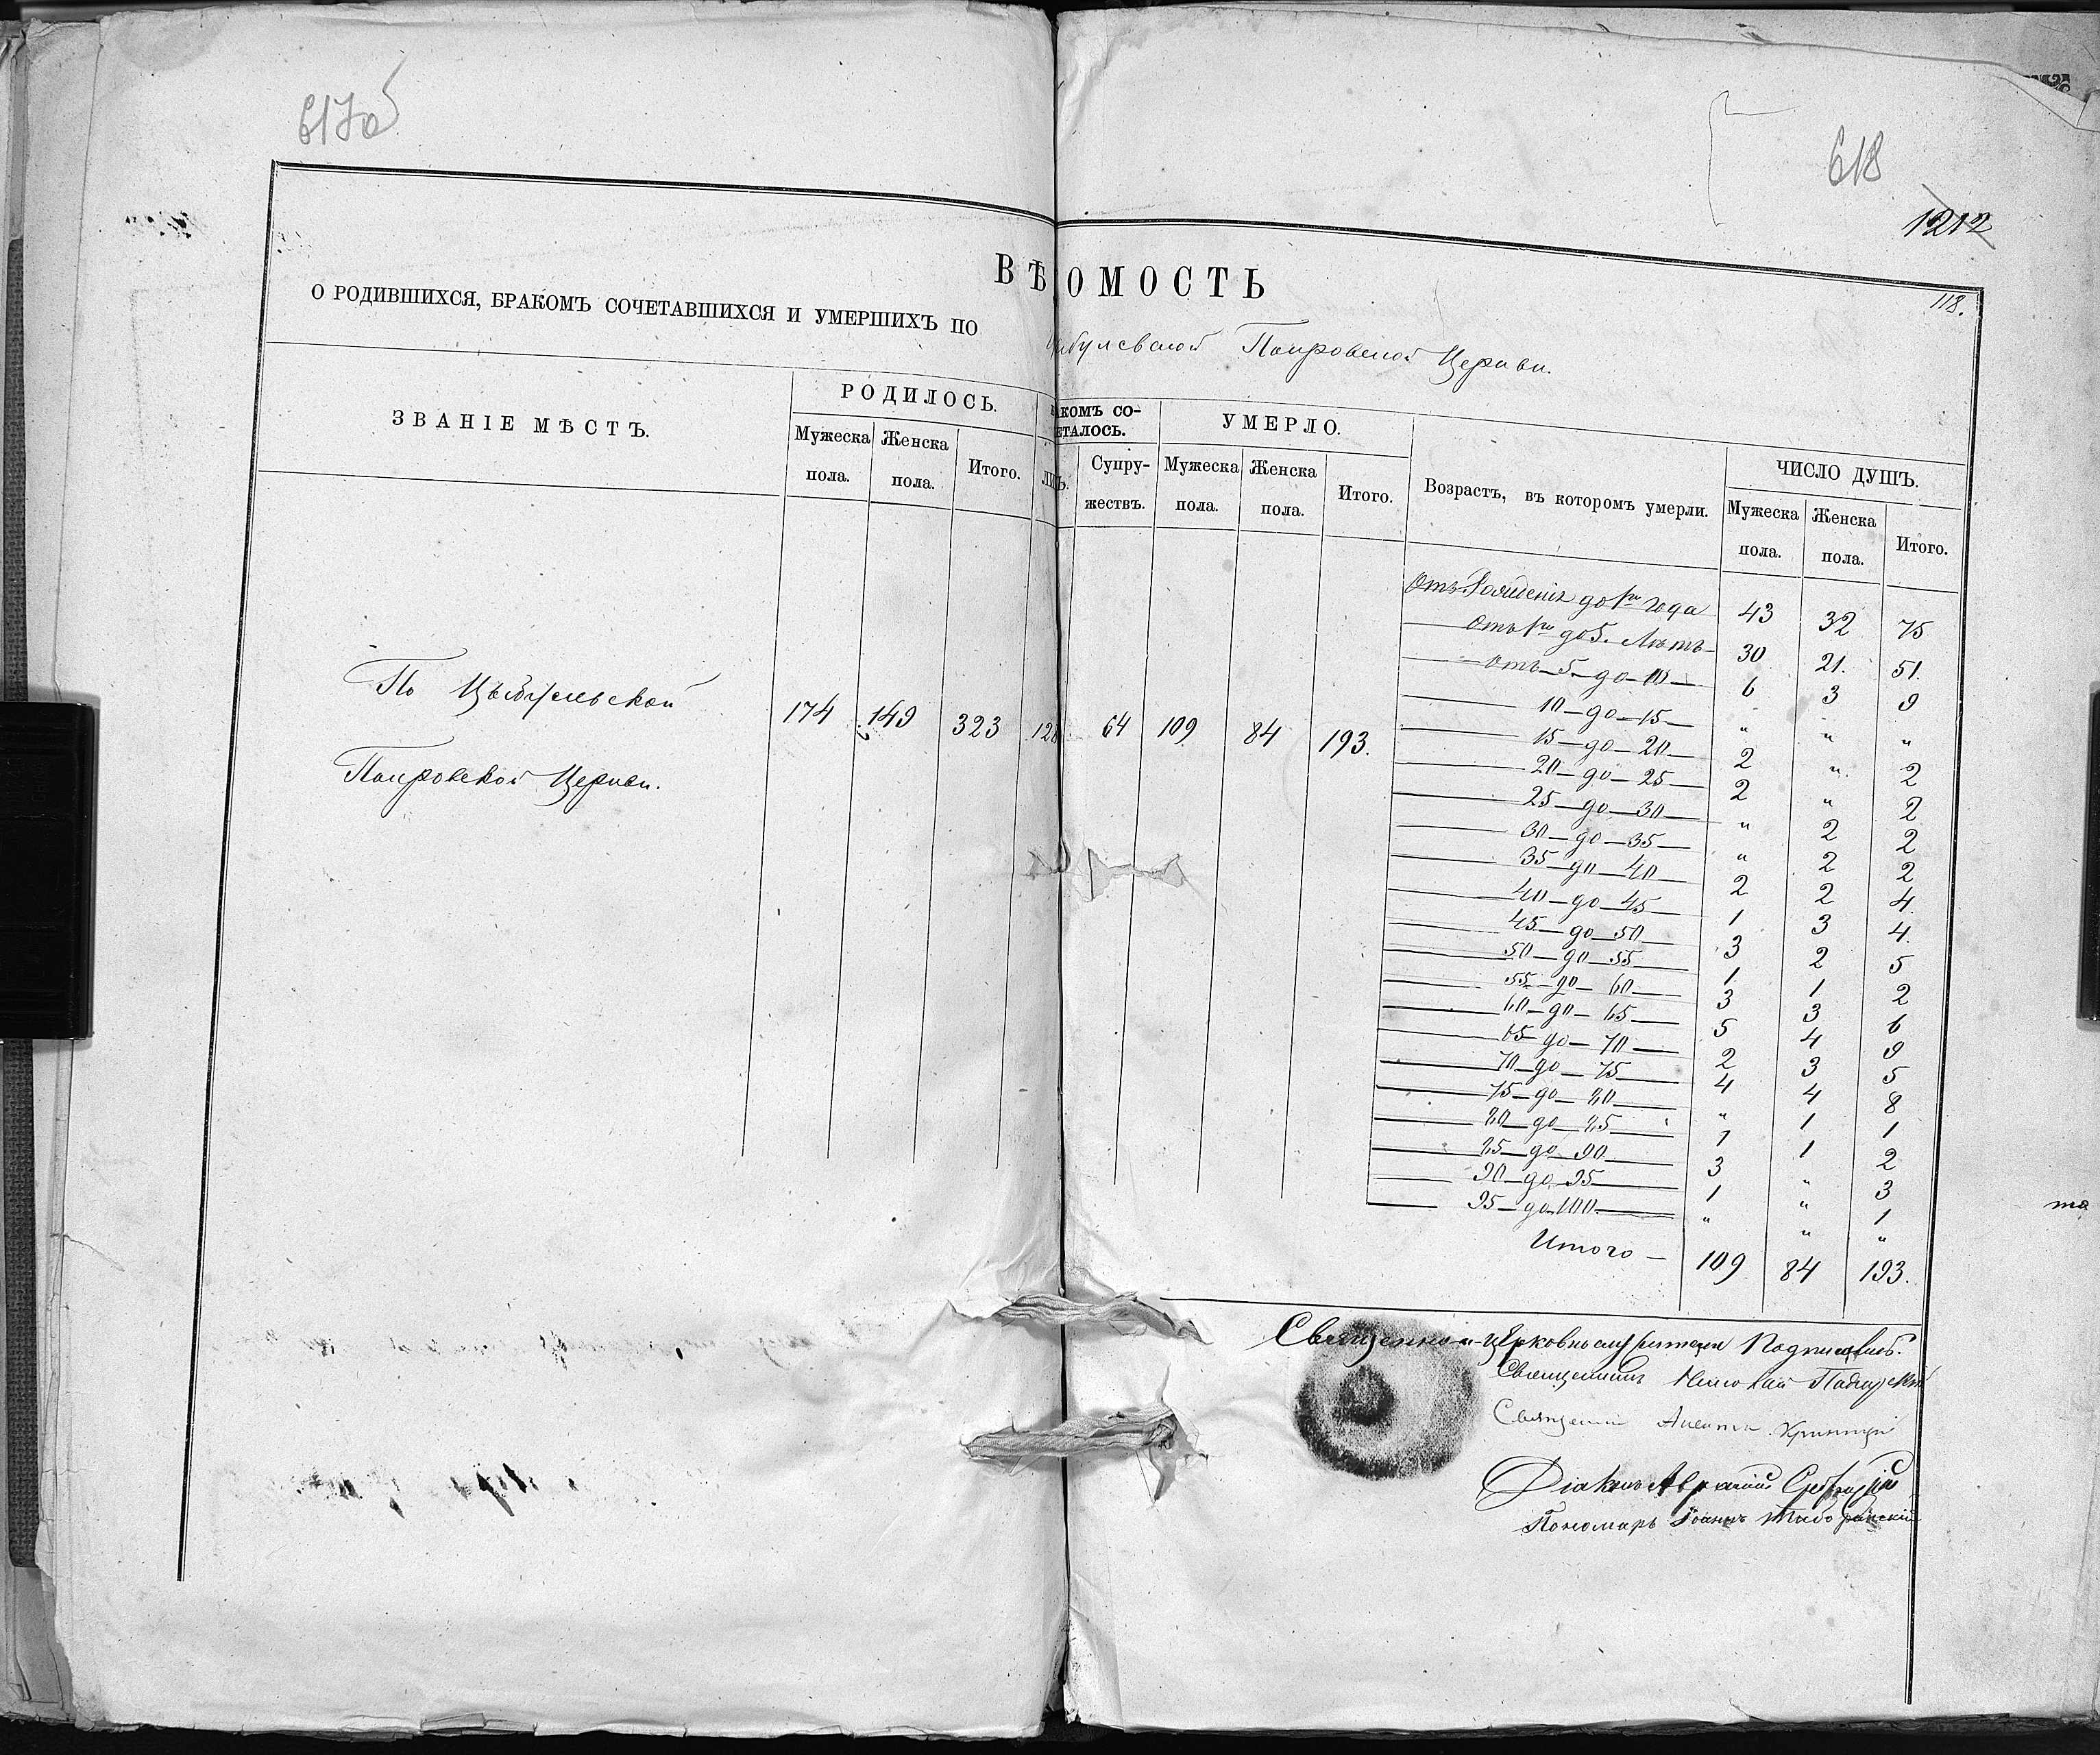 617об
618
1212
118.
ВѢДОМОСТЬ
О РОДИВШИХСЯ, БРАКОМЪ СОЧЕТАВШИХСЯ И УМЕРШИХЪ ПО
Покровской Церкви.
ЗВАНІЕ МѢСТЪ.
РОДИЛОСЬ.
Мужеска пола.
Женска пола.
Итого.
АКОМЪ СО-
ЕТАЛОСЬ.
Супру-
жествъ.
УМЕРЛО.
Мужеска пола.
Женска пола.
Итого.
Возрастъ, въ которомъ умерли.
ЧИСЛО ДУШЪ.
Мужеска пола.
Женска пола.
Итого.
По
Покровской Церкви.
174 149 323 128 64 109 84 193.
Отъ Рожденія до 1го года 43 32 75
Отъ 1го до 5. Лѣтъ 30 21. 51.
отъ 5 до 10 6 3 9
10 до 15 " " "
15 до 20 2 " 2
20 до 25 2 " 2
25 до 30 " 2 2
30 до 35 " 2 2
35 до 40 2 2 4
40 до 45 1 3 4
45 до 50 3 2 5
50 до 55 1 1 2
55 до 60 3 3 6
60 до 65 5 4 9
65 до 70 2 3 5
70 до 75 4 4 8
75 до 80 " 1 1
80 до 85 1 1 2
85 до 90 3 " 3
90 до 95 1 " 1
95 до 100 " " "
Итого 109 84 193.
Священно-церковнослужители Подписались.
Священникъ Николай
Священникъ
Діаконъ
Пономарь Іоаннъ
та